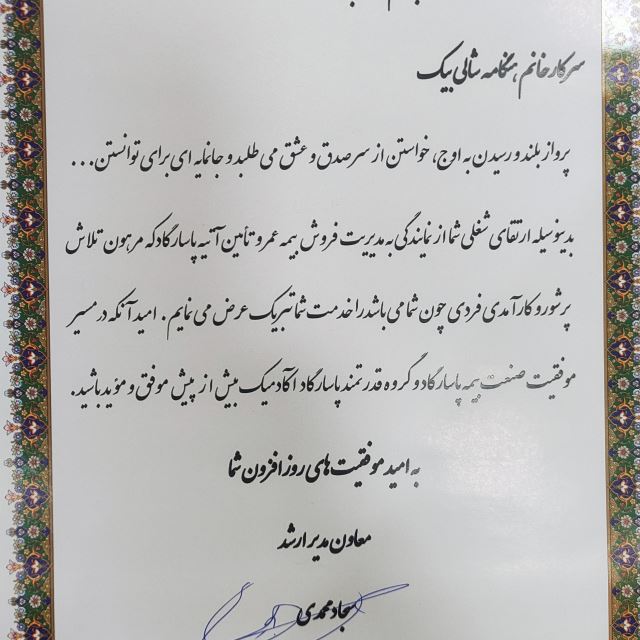 سرکار خانم هنگامه شالی بیک
پرواز بلند و رسیدن به اوج، خواستن از سر صدق و عشق می طلبد و جانمایه ای برای توانستن...
بدینوسیله ارتقای شغلی شما از نمایندگی به مدیریت فروش بیمه عمر و تأمین آتیه پاسارگاد که مرهون تلاش
پرشور و کارآمدی فردی چون شما می باشد را خدمت شما تبریک عرض می نمایم. امید آنکه در مسیر
موفقیت صنعت بیمه پاسارگاد و گروه قدرتمند پاسارگاد آکادمیک بیش از پیش موفق و مؤید باشید.
به امید موفقیت های روز افزون شما
معاون مدیر ارشد
سجاد محمدی